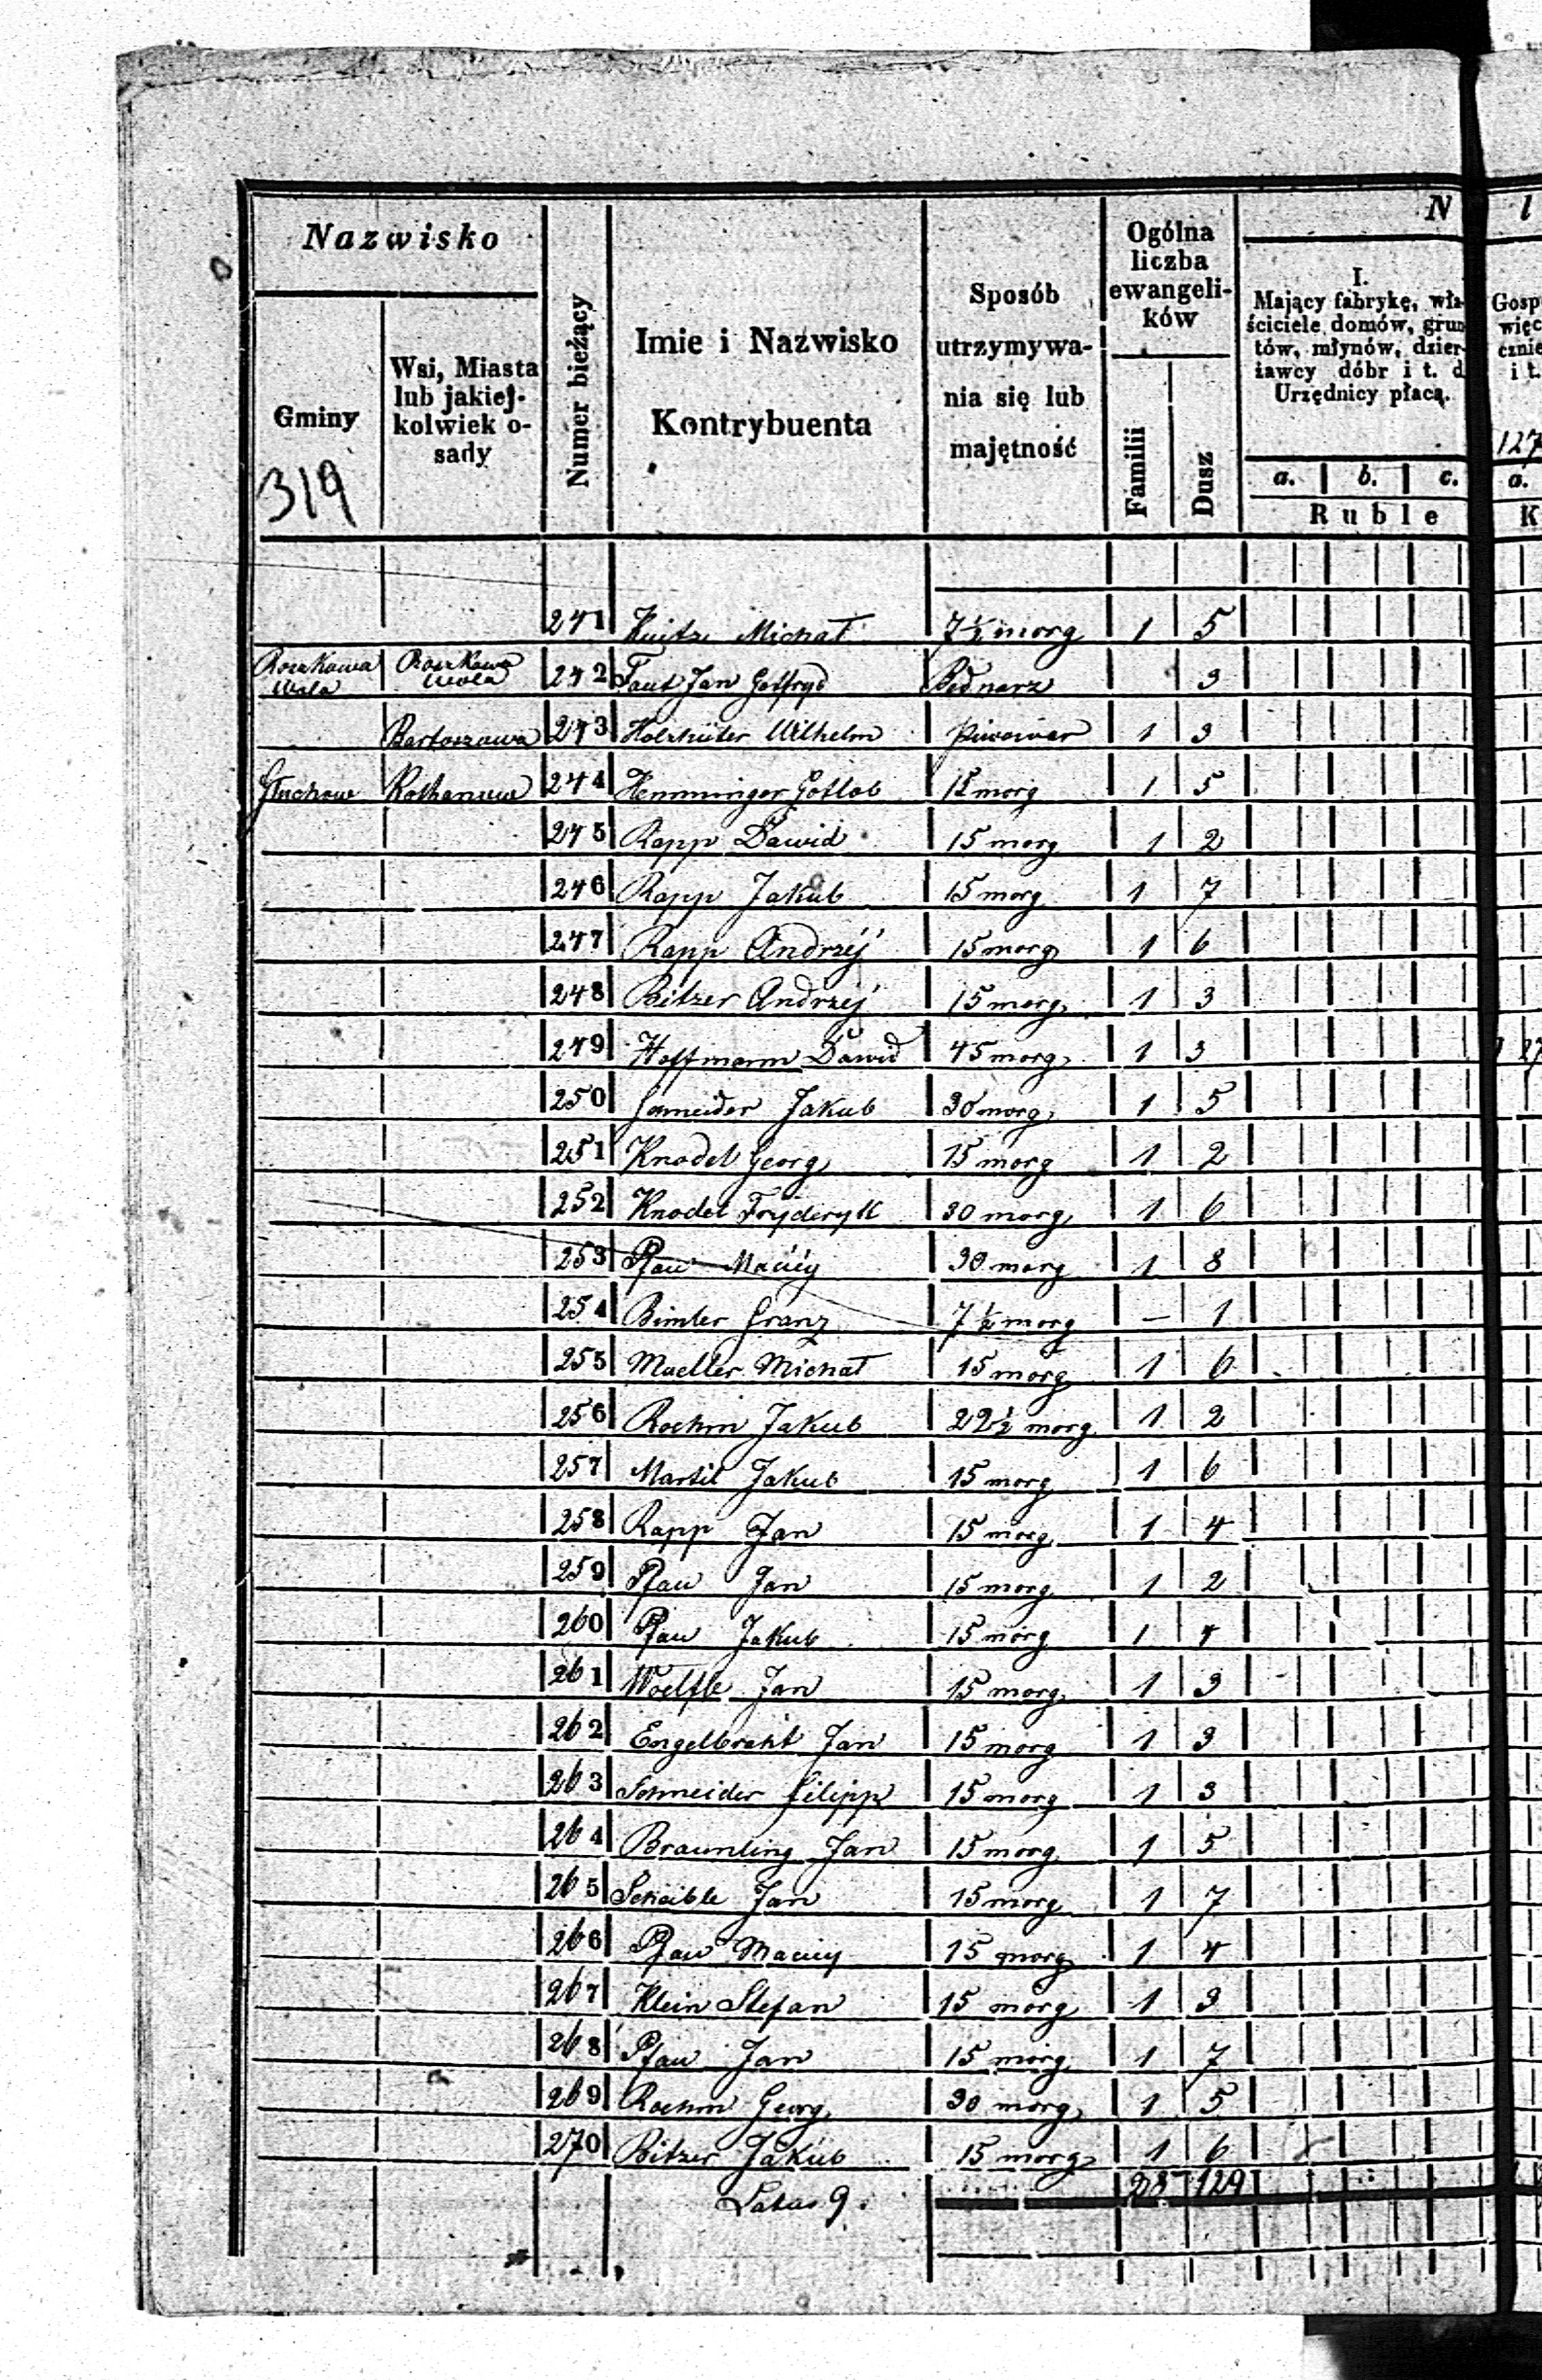 Nazwisko
Gminy
Wsi, Miasta
lub jakiej-
kolwiek o-
sady
Numer bieżący
Imie i Nazwisko
Kontrybuenta
Sposób
utrzymywa-
nia się lub
majętność
Ogólna
liczba
ewangeli-
ków
Familii
Dusz
N
I.
Mający fabrykę, wła-
ściciele domów, grun
tów, młynów, dzier-
żawcy dóbr i t. d
Urzędnicy płacą.
a. b. c.
Ruble
l
Gosp
więc
cznie
i t.
127
a.
K
319
241 Michał 7½ morg 1 5
Roszkowa Wola Roszkowa Wola 242 Faut Jan Gotfryd Bednarz 3
Bartoszowa 243 Holzhüter Wilhelm piwowar 1 3
Głuchow 244 Hemminger Gotlob 15 morg 1 5
245 Rapp Dawid 15 morg 1 2
246 Rapp Jakub 15 morg 1 7
247 Rapp Andrzéj 15 morg 1 6
248 Bitzer Andrzéj 15 morg 1 3
249 Hoffmann Dawid 45 morg 1 3
250 Schneider Jakub 30 morg 1 5
251 Knodel Georg 15 morg 1 2
252 Knodel Fryderyk 30 morg 1 6
253 Pfau Maciéy 30 morg 1 8
254 Bimler Franz 7½ morg – 1
255 Mueller Michał 15 morg 1 6
256 Roehm Jakub 22½ morg 1 2
257 Jakub 15 morg 1 6
258 Rapp Jan 15 morg 1 4
259 Pfau Jan 15 morg 1 2
260 Pfau Jakub 15 morg 1 4
261 Woelfle Jan 15 morg 1 3
262 Engelbrekt Jan 15 morg 1 3
263 Schneider Filipp 15 morg 1 3
264 Braunling Jan 15 morg 1 5
265 Scheible Jan 15 morg 1 7
266 Pfau Maciey 15 morg 1 4
267 Klein Stefan 15 morg 1 3
268 Pfau Jan 15 morg 1 7
269 Roehm Georg 30 morg 1 5
270 Bitzer Jakub 15 morg 1 6
Latus 9. 28 129